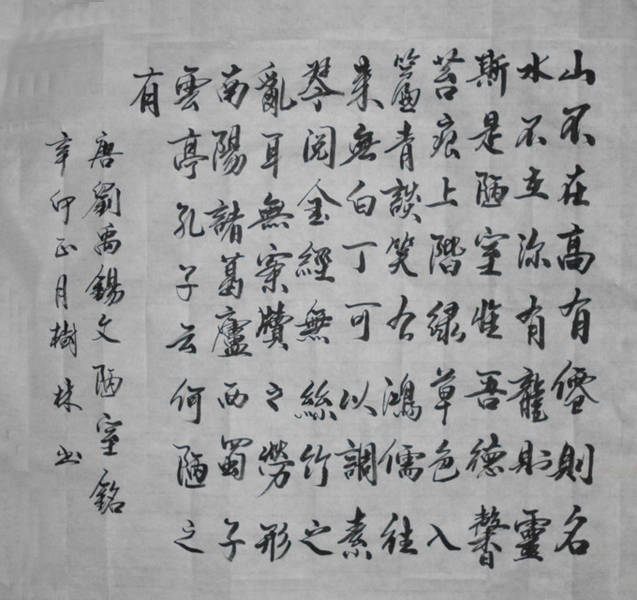 山不在高有僊則名
水不在深有龍則靈
斯是陋室惟吾德馨
苔痕上階緑草色入
簾青談笑有鴻儒往
来無白丁可以調素
琴閲金經無絲竹之
亂耳無案牘之勞形
南陽諸葛廬西蜀子
雲亭孔子云何陋之
有
唐劉禹錫文陋室銘
辛卯正月樹林书